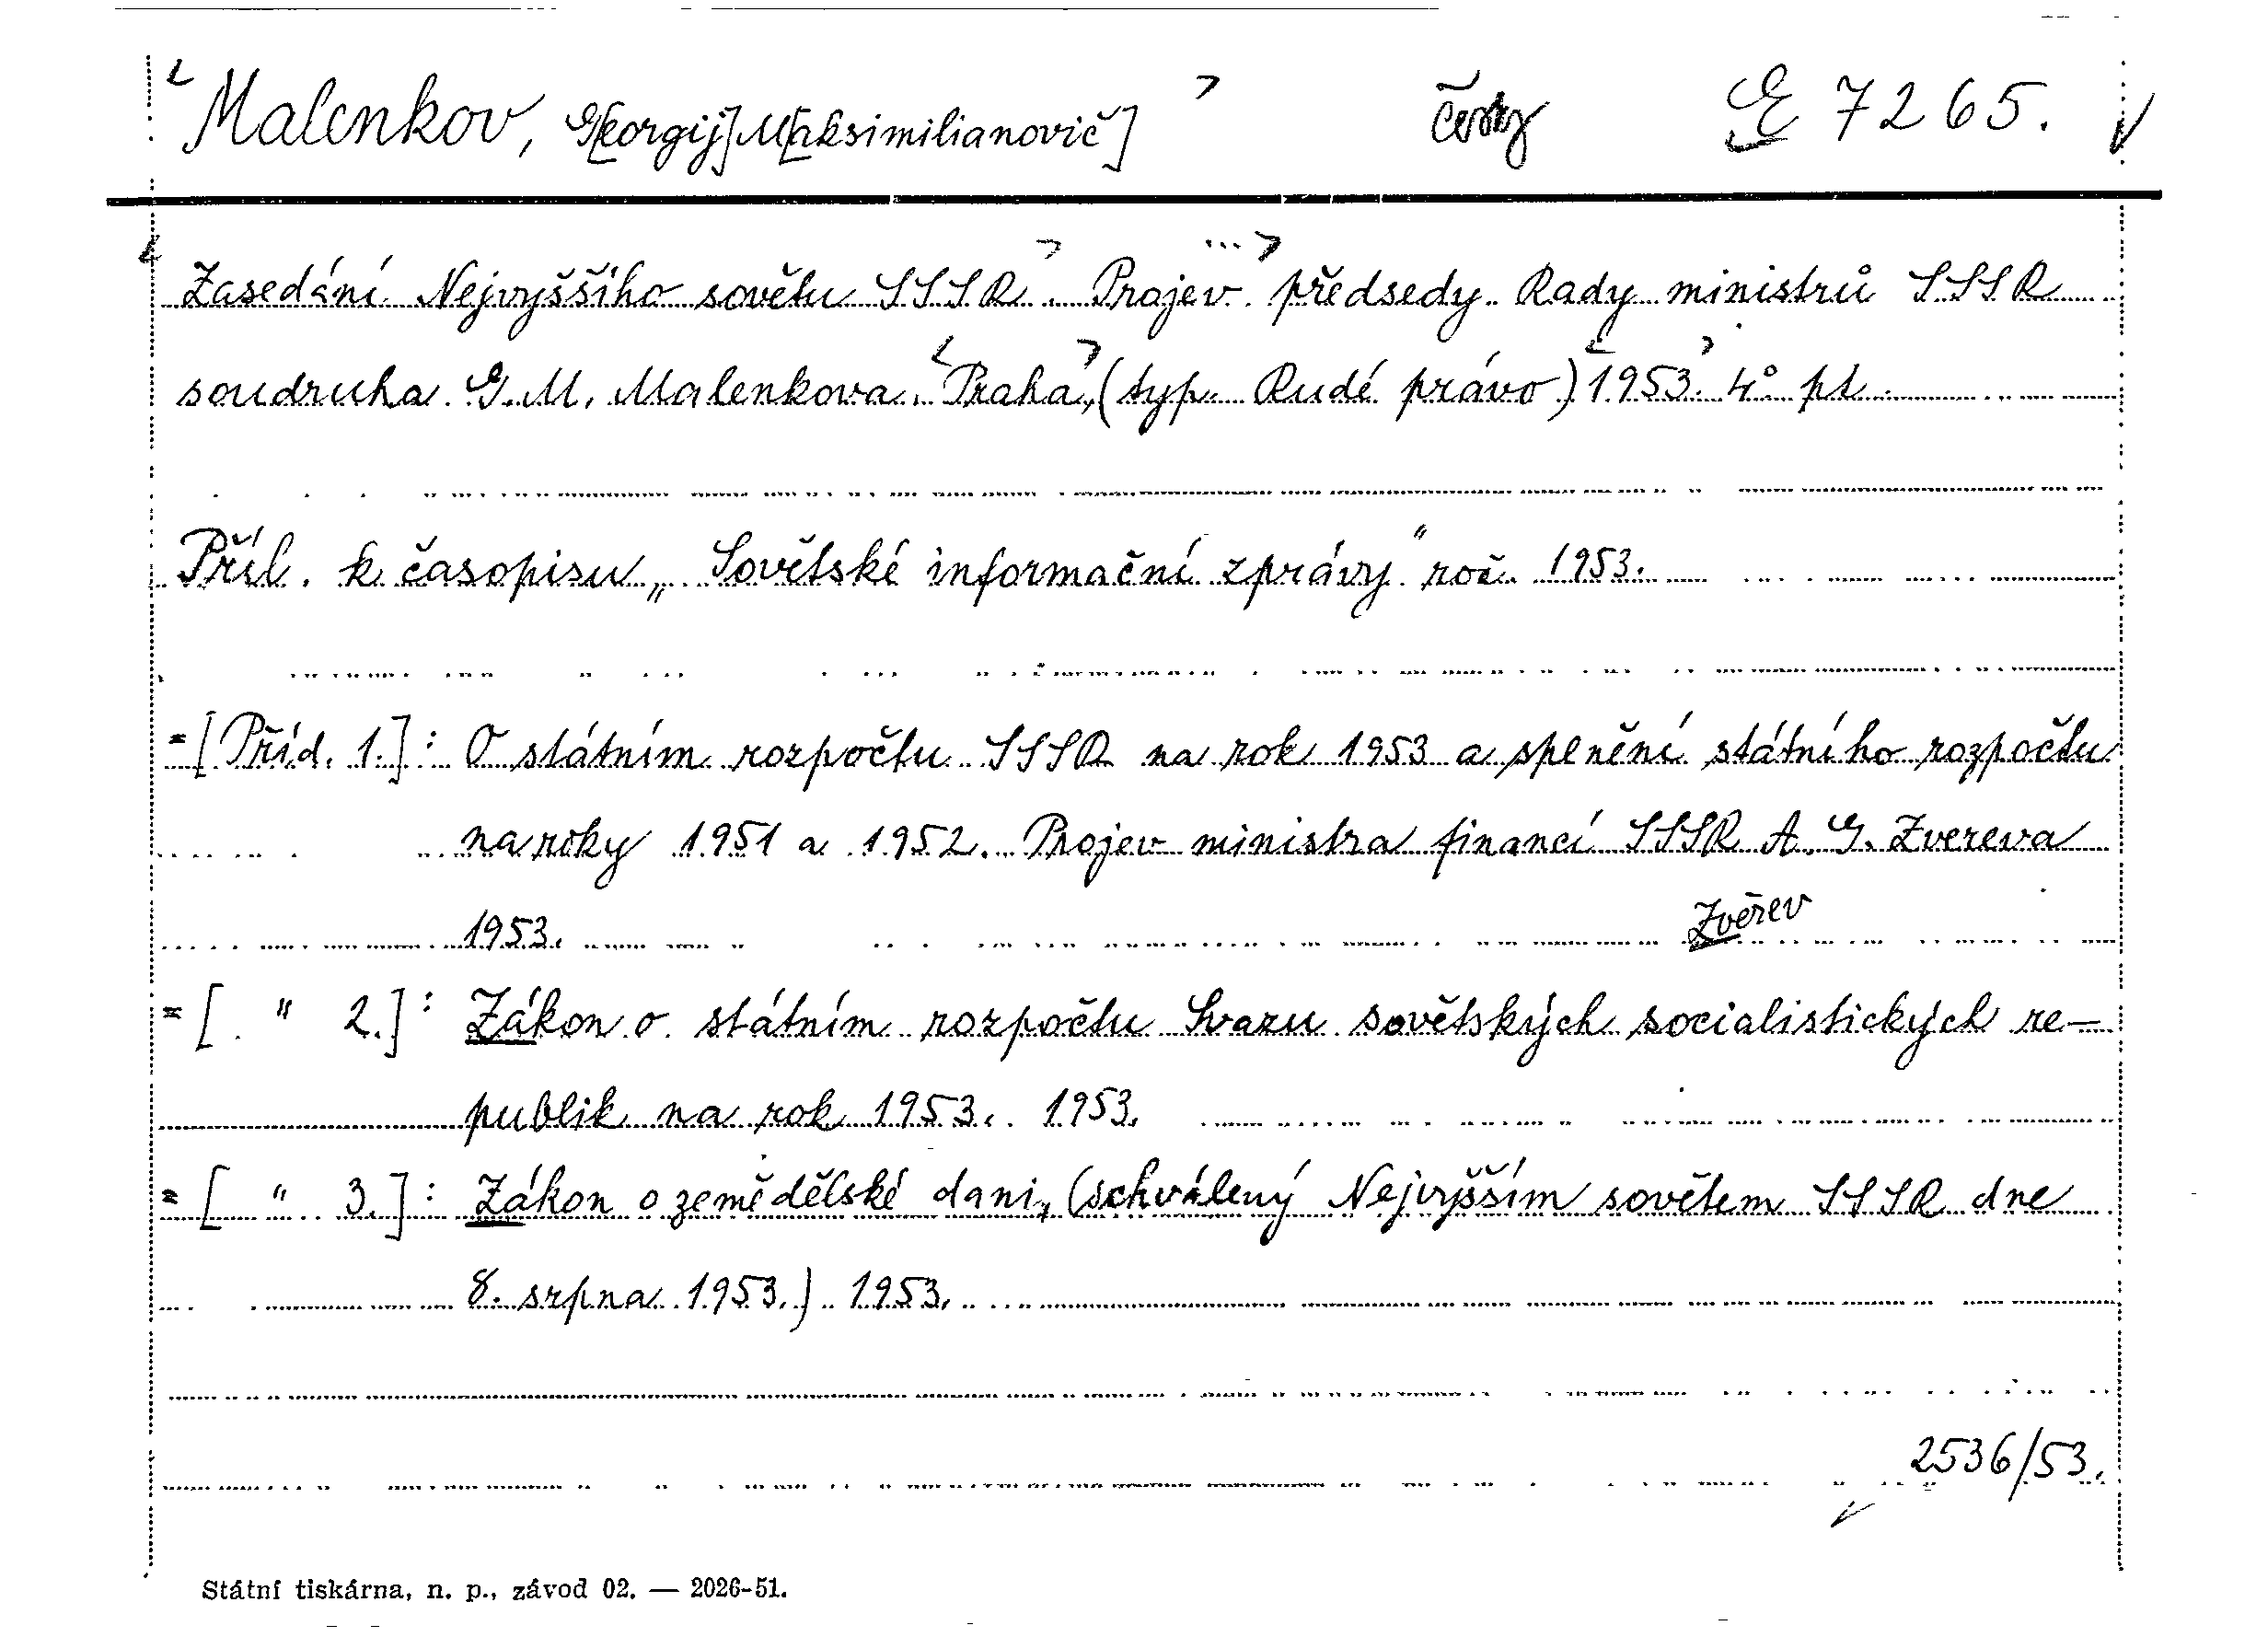 Malenkov, G[eorgij] M[aksimilianovič] česky E 7265.
Zasedání Nejvyššího sovětu SSSR. Projev předsedy Rady ministrů SSSR
soudruha G. M. Malenkova. Praha, (typ. Rudé právo) 1953. 4° pt.
Příl. k časopisu „Sovětské informační zprávy" roč. 1953.
= [Příd. 1.]: O státním rozpočtu SSSR na rok 1953 a splnění státního rozpočtu
na roky 1951 a 1952. Projev ministra financí SSSR A. G. Zvereva
1953. Zvěrev
= [ " 2.]: Zákon o státním rozpočtu Svazu sovětských socialistických re-
publik na rok 1953. 1953.
= [ " 3.]: Zákon o zemědělské dani, (schválený Nejvyšším sovětem SSSR dne
8. srpna 1953.) 1953.
2536/53.
Státní tiskárna, n. p., závod 02. — 2026-51.